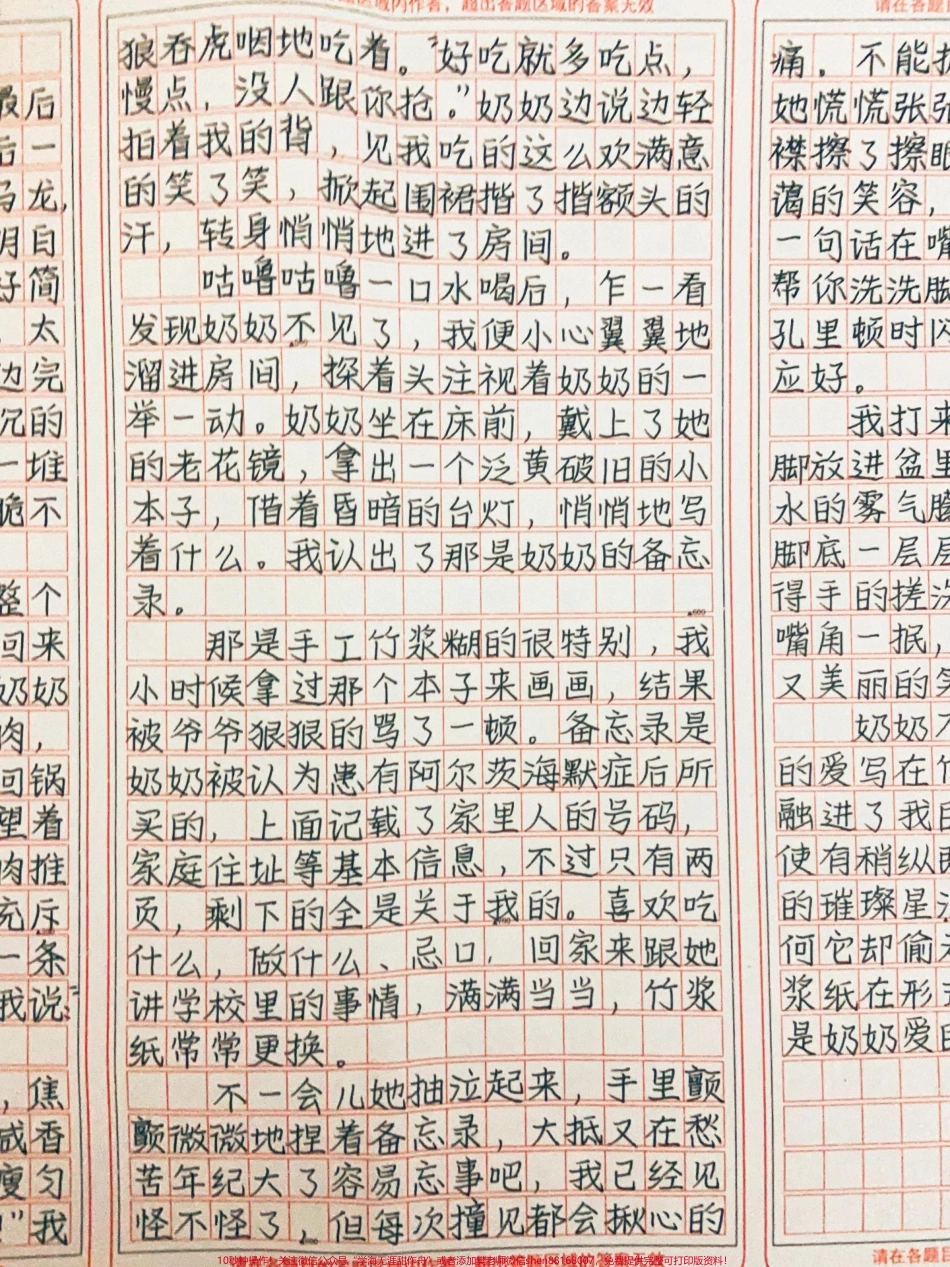 最后
后一
乌龙,
明白
好简
太
边完
沉的
一堆
脆不
整个
回来
奶奶
肉，
回锅
望着
肉推
充斥
一条
我说：“
，焦
咸香
瘦匀
！”我
狼吞虎咽地吃着。“好吃就多吃点，
慢点，没人跟你抢。”奶奶边说边轻
拍着我的背，见我吃的这么欢满意
的笑了笑，掀起围裙揩了揩额头的
汗，转身悄悄地进了房间。
咕噜咕噜一口水喝后，乍一看
发现奶奶不见了，我便小心翼翼地
溜进房间，探着头注视着奶奶的一
举一动。奶奶坐在床前，戴上了她
的老花镜，拿出一个泛黄破旧的小
本子，借着昏暗的台灯，悄悄地写
着什么。我认出了那是奶奶的备忘
录。
▲600
那是手工竹浆糊的很特别，我
小时候拿过那个本子来画画，结果
被爷爷狠狠的骂了一顿。备忘录是
奶奶被认为患有阿尔茨海默症后所
买的，上面记载了家里人的号码，
家庭住址等基本信息，不过只有两
页，剩下的全是关于我的。喜欢吃
什么，做什么、忌口，回家来跟她
讲学校里的事情，满满当当，竹浆
纸常常更换。
不一会儿她抽泣起来，手里颤
颤微微地捏着备忘录，大抵又在愁
苦年纪大了容易忘事吧，我已经见
怪不怪了，但每次撞见都会揪心的
请在各题
痛．不能
她慌慌张张
襟擦了擦眼
蔼的笑容，
一句话在嘴
帮你洗洗脚
孔里顿时闪
应好。
我打来
脚放进盆里
水的雾气
脚底一层层
得手的搓洗
嘴角一抿，
又美丽的笑
奶奶
的爱写在竹
融进了我
使有稍纵
的璀璨星
何它却偷
浆纸在形
是奶奶爱
请在各题目